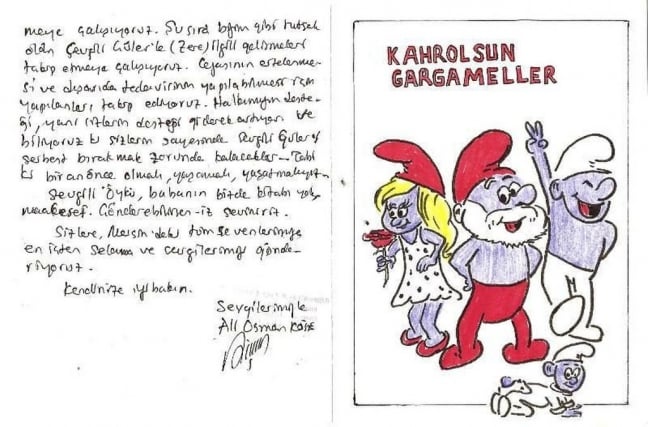 meye çalışıyoruz. Şu sıra bizim gibi tutsak
olan Sevgili Güler'le (Zere) ilgili gelişmeleri
takip etmeye çalışıyoruz. Cezasının ertelenme-
si ve dışarıda tedavisinin yapılabilmesi için
yapılanları takip ediyoruz. Halkımızın deste-
ği, yani sizlerin desteği giderek artıyor. Ve
biliyoruz ki sizlerin sayesinde Sevgili Güler'i
serbest bırakmak zorunda kalacaklar. Tabi
ki bir an önce olmalı, yaşamalı, yaşatmalıyız.
Sevgili Öykü, babanın bizde kitabı yok
maalesef. Gönderebilirsen-iz seviniriz.
Sizlere, Mersin'deki tüm sevenlerimize
en içten selam ve sevgilerimizi gönde-
riyoruz.
Kendinize iyi bakın.
Sevgilerimizle
Ali Osman Köse
KAHROLSUN
GARGAMELLER